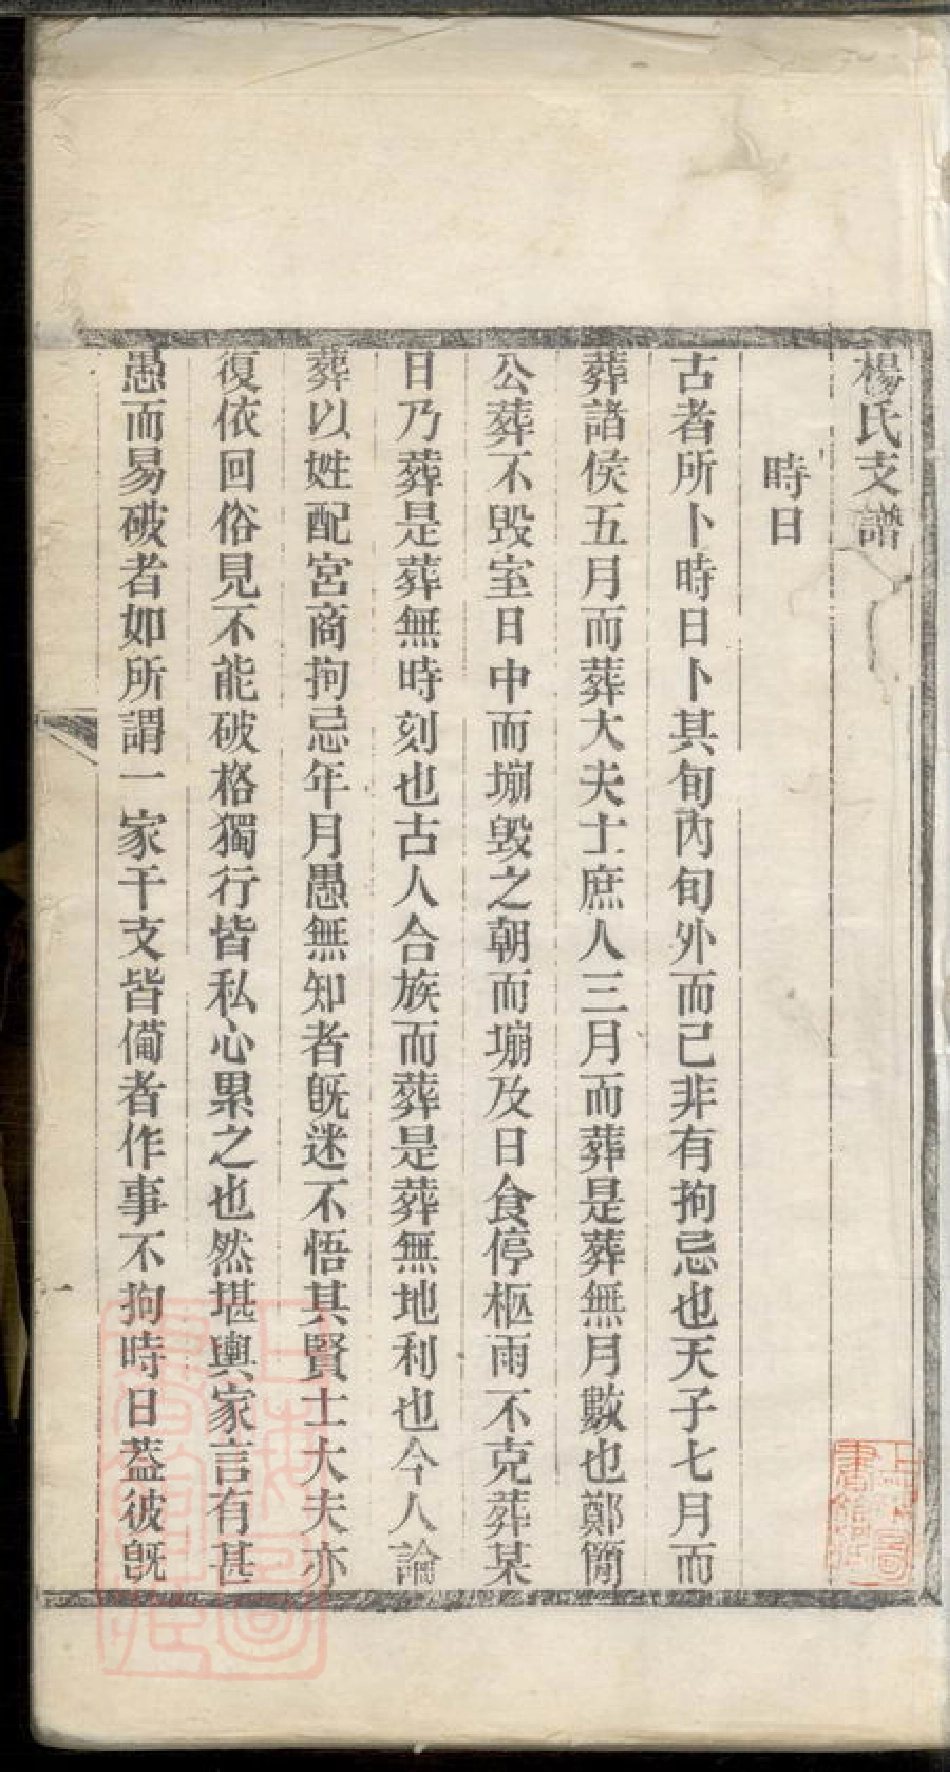 楊氏支譜
時日
古者所卜時日卜其旬內旬外而已非有拘忌也天子七月而
葬諸侯五月而葬大夫士庶人三月而葬是葬無月數也鄭簡
公葬不毀室日中而堋毀之朝而堋及日食停柩雨不克葬某
日乃葬是葬無時刻也古人合族而葬是葬無地利也今人論
葬以姓配宮商拘忌年月愚無知者旣迷不悟其賢士大夫亦
復依回俗見不能破格獨行皆私心累之也然堪輿家言有甚
愚而易破者如所謂一家干支皆僃者作事不拘時日葢彼旣
上海圖書館藏